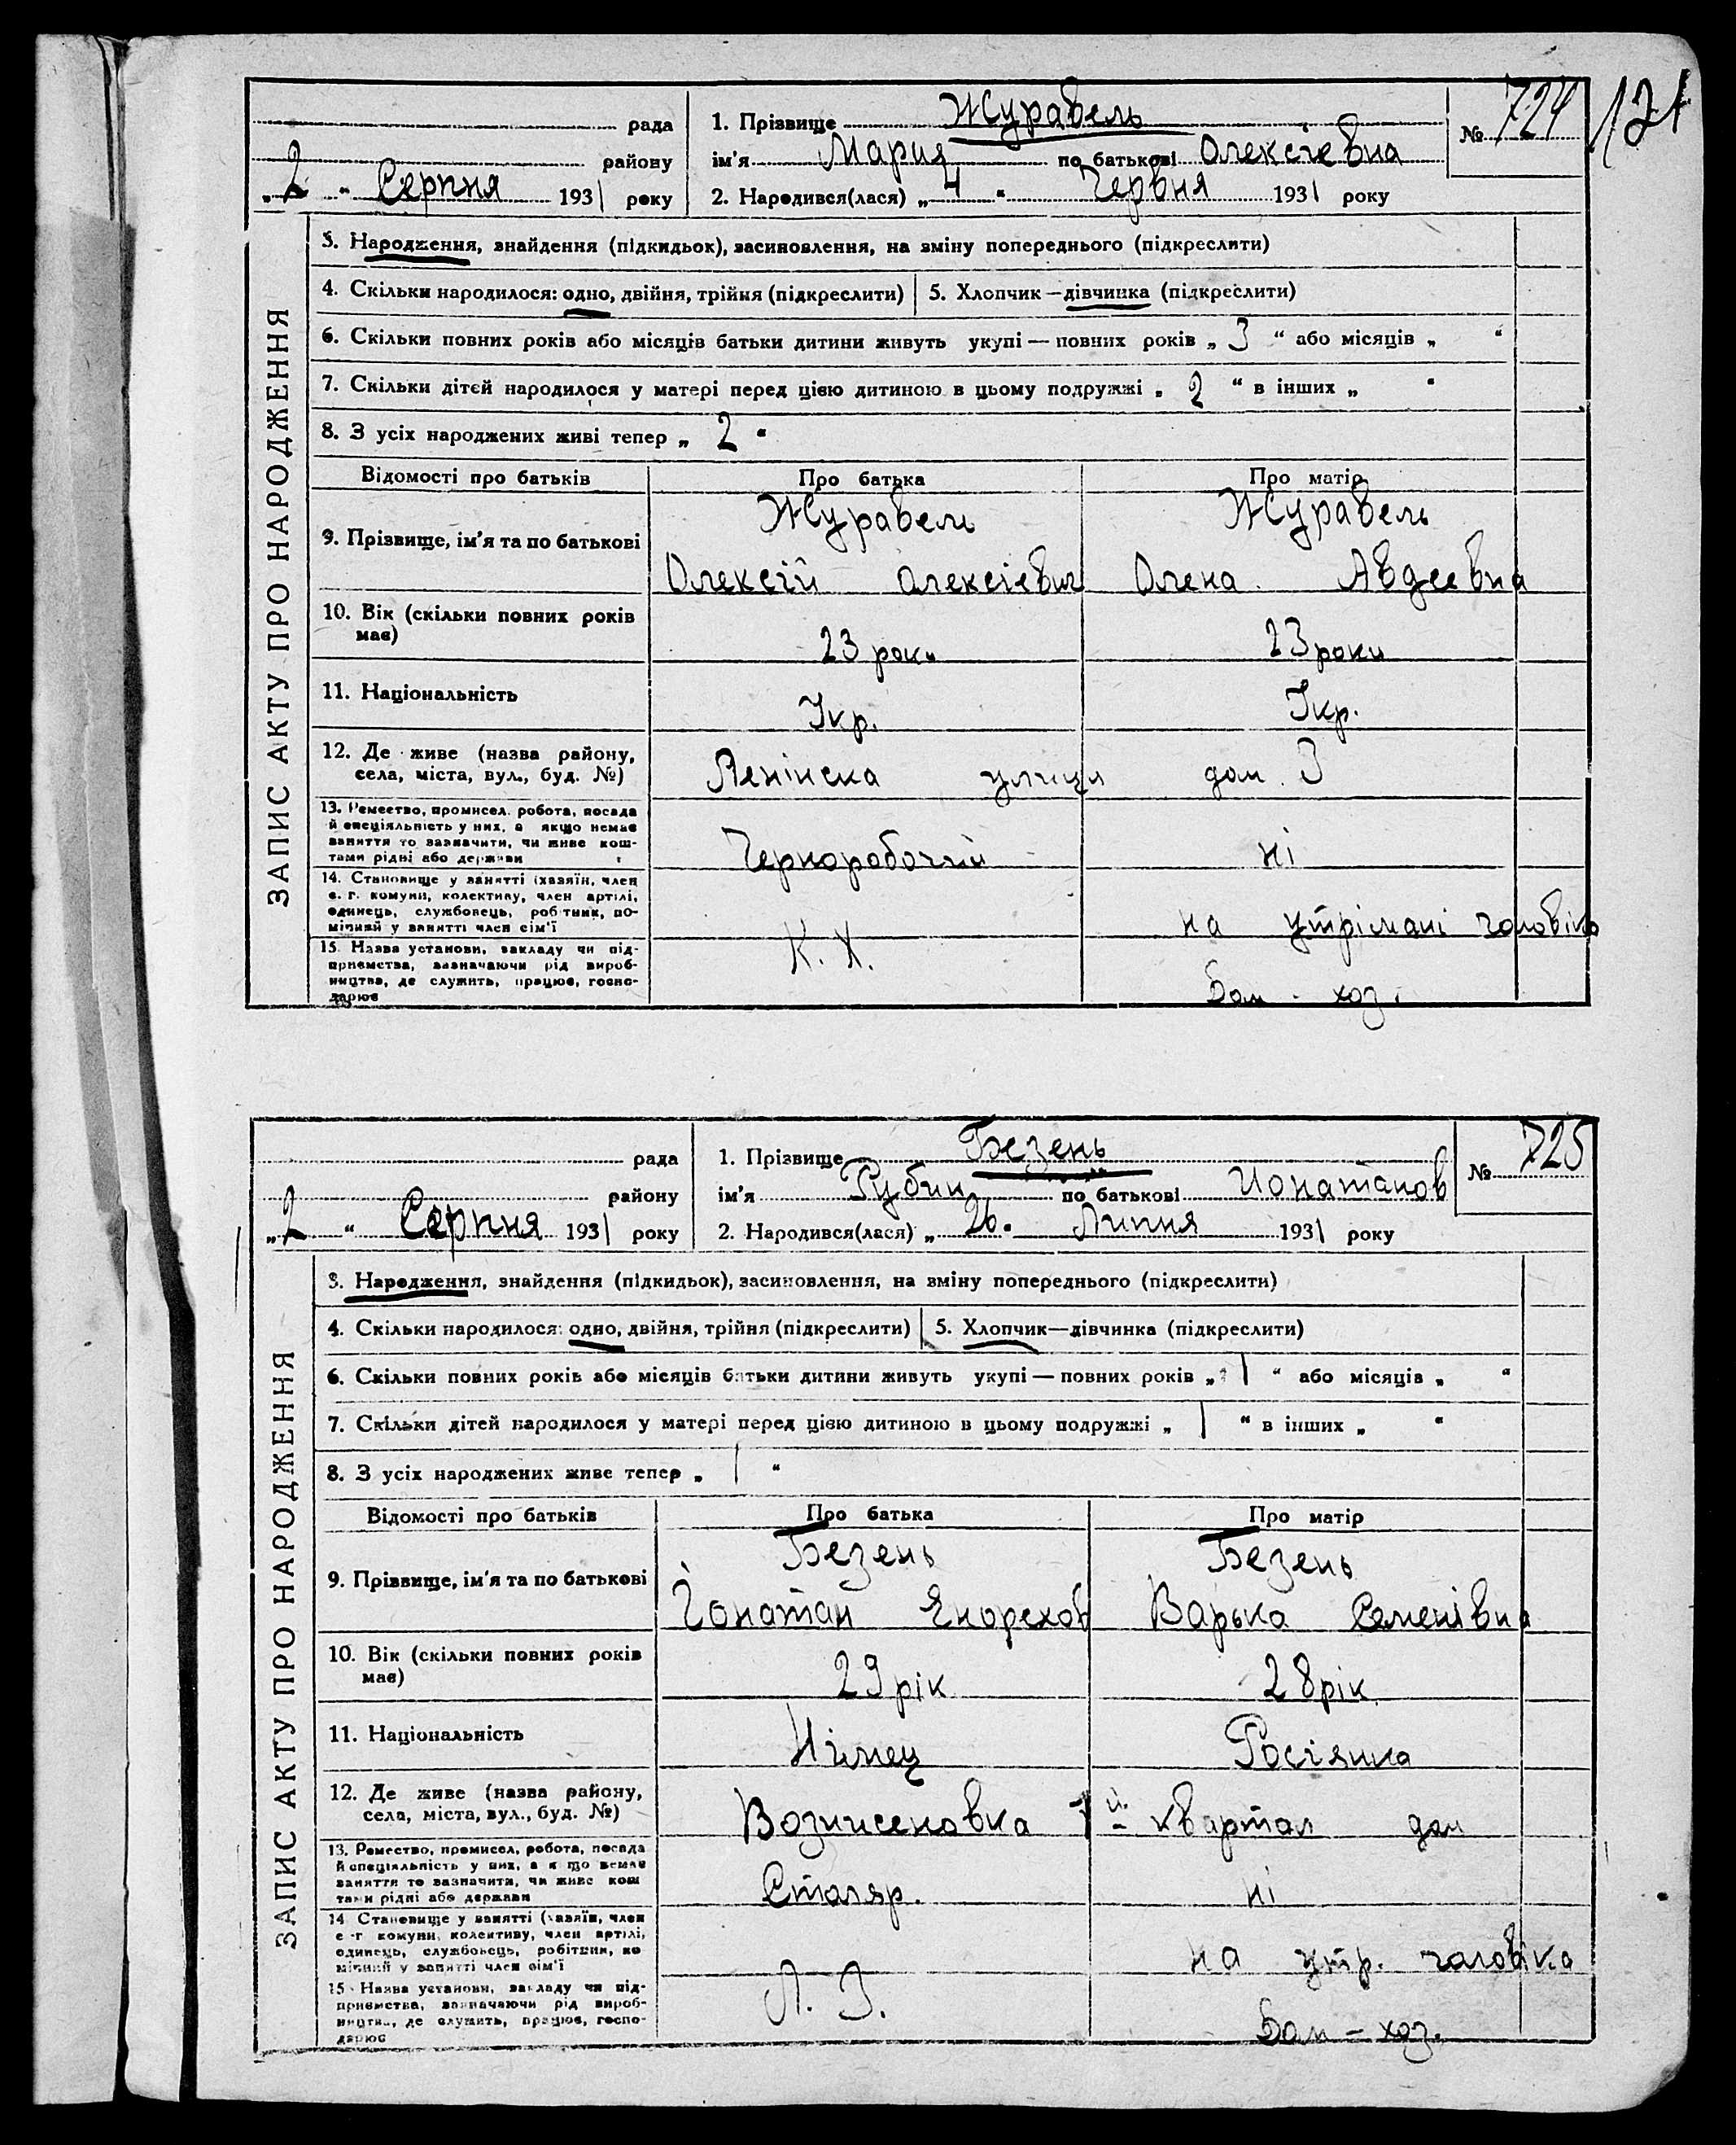 121
рада
району
„2“ Серпня 1931 року
1. Прізвище Журавель
ім'я Мария по батькові Олексієвна
2. Народився(лася) „4“ Червня 1931 року
№ 724
ЗАПИС АКТУ ПРО НАРОДЖЕННЯ
3. Народження, знайдення (підкидьок), засиновлення, на зміну попереднього (підкреслити)
4. Скільки народилося: одно, двійня, трійня (підкреслити) 5. Хлопчик—дівчинка (підкреслити)
6. Скільки повних років або місяців батьки дитини живуть укупі — повних років „ 3 “ або місяців „ “
7. Скільки дітей народилося у матері перед цією дитиною в цьому подружжі „ 2 “ в інших „ “
8. З усіх народжених живі тепер „ 2 “
Відомості про батьків Про батька Про матір
9. Прізвище, ім'я та по батькові
Журавель Журавель
Олексій Олексієвич Олена Авдеевна
10. Вік (скільки повних років
має)
23 роки 23 роки
11. Національність
Укр. Укр.
12. Де живе (назва району,
села, міста, вул., буд. №)
Ленінска улиця дом 3
13. Ремество, промисел, робота, посада
й спеціяльність у них, а якщо немає
заняття то зазначити, чи живе кош-
тами рідні або держави
Черноробочий ні
14. Становище у занятті (хазяїн, член
с. г. комуни, колективу, член артілі,
одинець, службовець, робітник, по-
мічний у занятті член сім'ї
на утрімані чоловіка
15. Назва установи, закладу чи під-
приємства, зазначаючи рід вироб-
ництва, де служить, працює, госпо-
дарює
К. Х. Дом. хоз.
рада
району
„2“ Серпня 1931 року
1. Прізвище Безень
ім'я Рубин по батькові Ионатанов
2. Народився(лася) „26. Липня 1931 року
№ 725
ЗАПИС АКТУ ПРО НАРОДЖЕННЯ
3. Народження, знайдення (підкидьок), засиновлення, на зміну попереднього (підкреслити)
4. Скільки народилося: одно, двійня, трійня (підкреслити) 5. Хлопчик—дівчинка (підкреслити)
6. Скільки повних років або місяців батьки дитини живуть укупі — повних років „ 1 “ або місяців „ “
7. Скільки дітей народилося у матері перед цією дитиною в цьому подружжі „ 1 “ в інших „ “
8. З усіх народжених живе тепер „ 1 “
Відомості про батьків Про батька Про матір
9. Прізвище, ім'я та по батькові
Безень Безень
Йонатан Варька Семенівна
10. Вік (скільки повних років
має)
29 рік 28 рік
11. Національність
Німец Росіянка
12. Де живе (назва району,
села, міста, вул., буд. №)
Вознисеновка 1й квартал дом
13. Ремество, промисел, робота, посада
й спеціяльність у них, а якщо немає
заняття то зазначити, чи живе кош
тами рідні або держави
Столяр. ні
14. Становище у занятті (хазяїн, член
с г комуни, колективу, член артілі,
одинець, службовець, робітник, по
мічний у занятті член сім'ї
на утр. чоловіка
15. Назва установи, закладу чи під-
приємства, зазначаючи рід вироб-
ництва, де служить, працює, госпо-
дарює
Л. З. Дом-хоз.